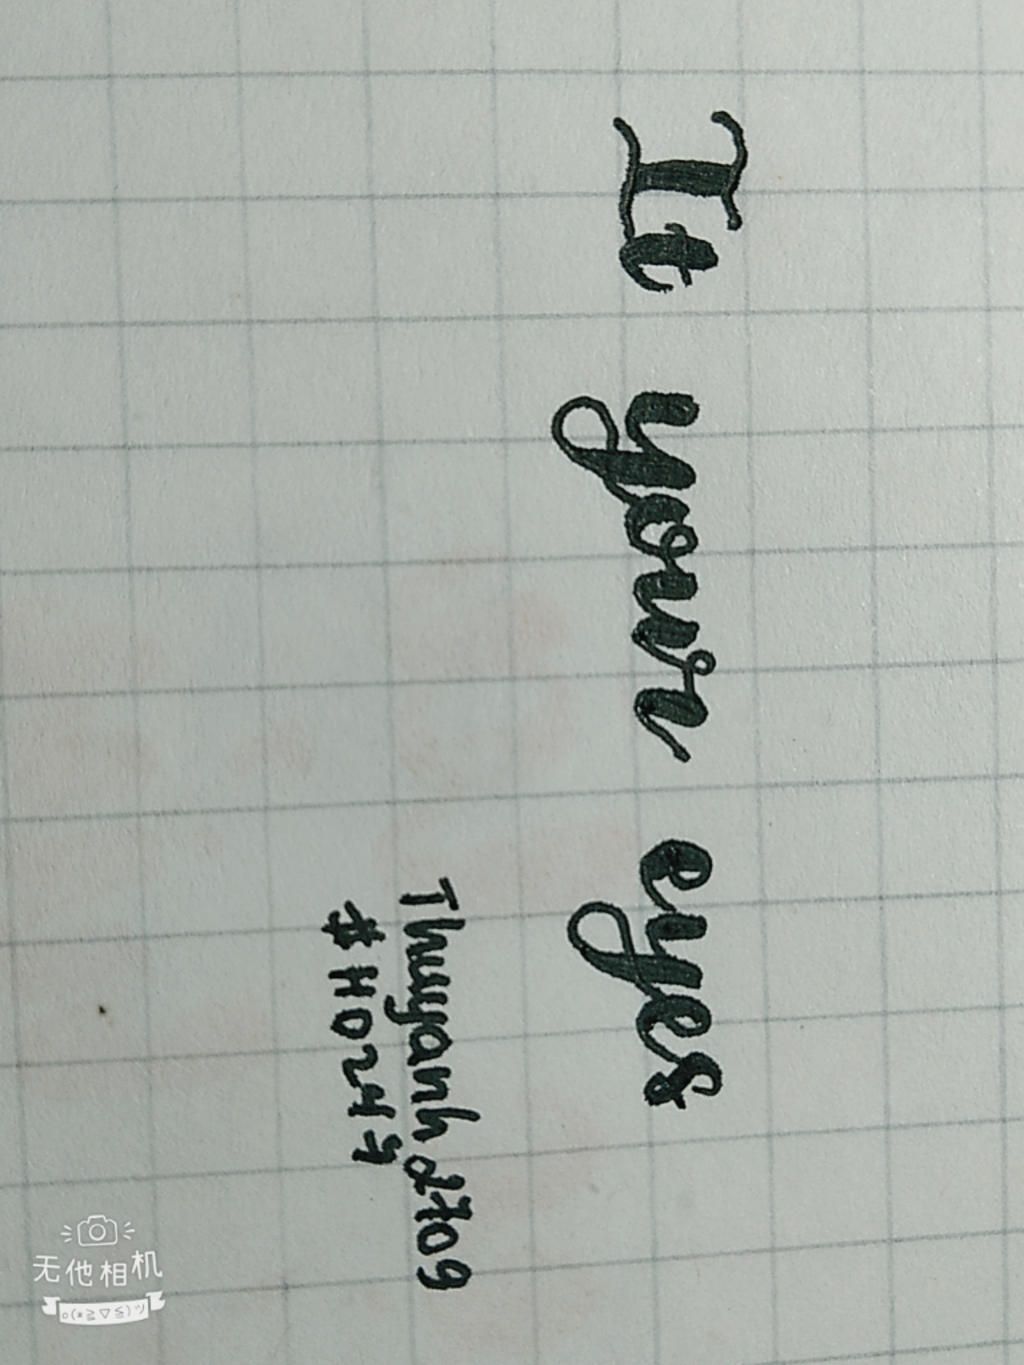 It your eyes
Thuyanh2709
#H0247
无他相机
o(*≧▽≦)ツ